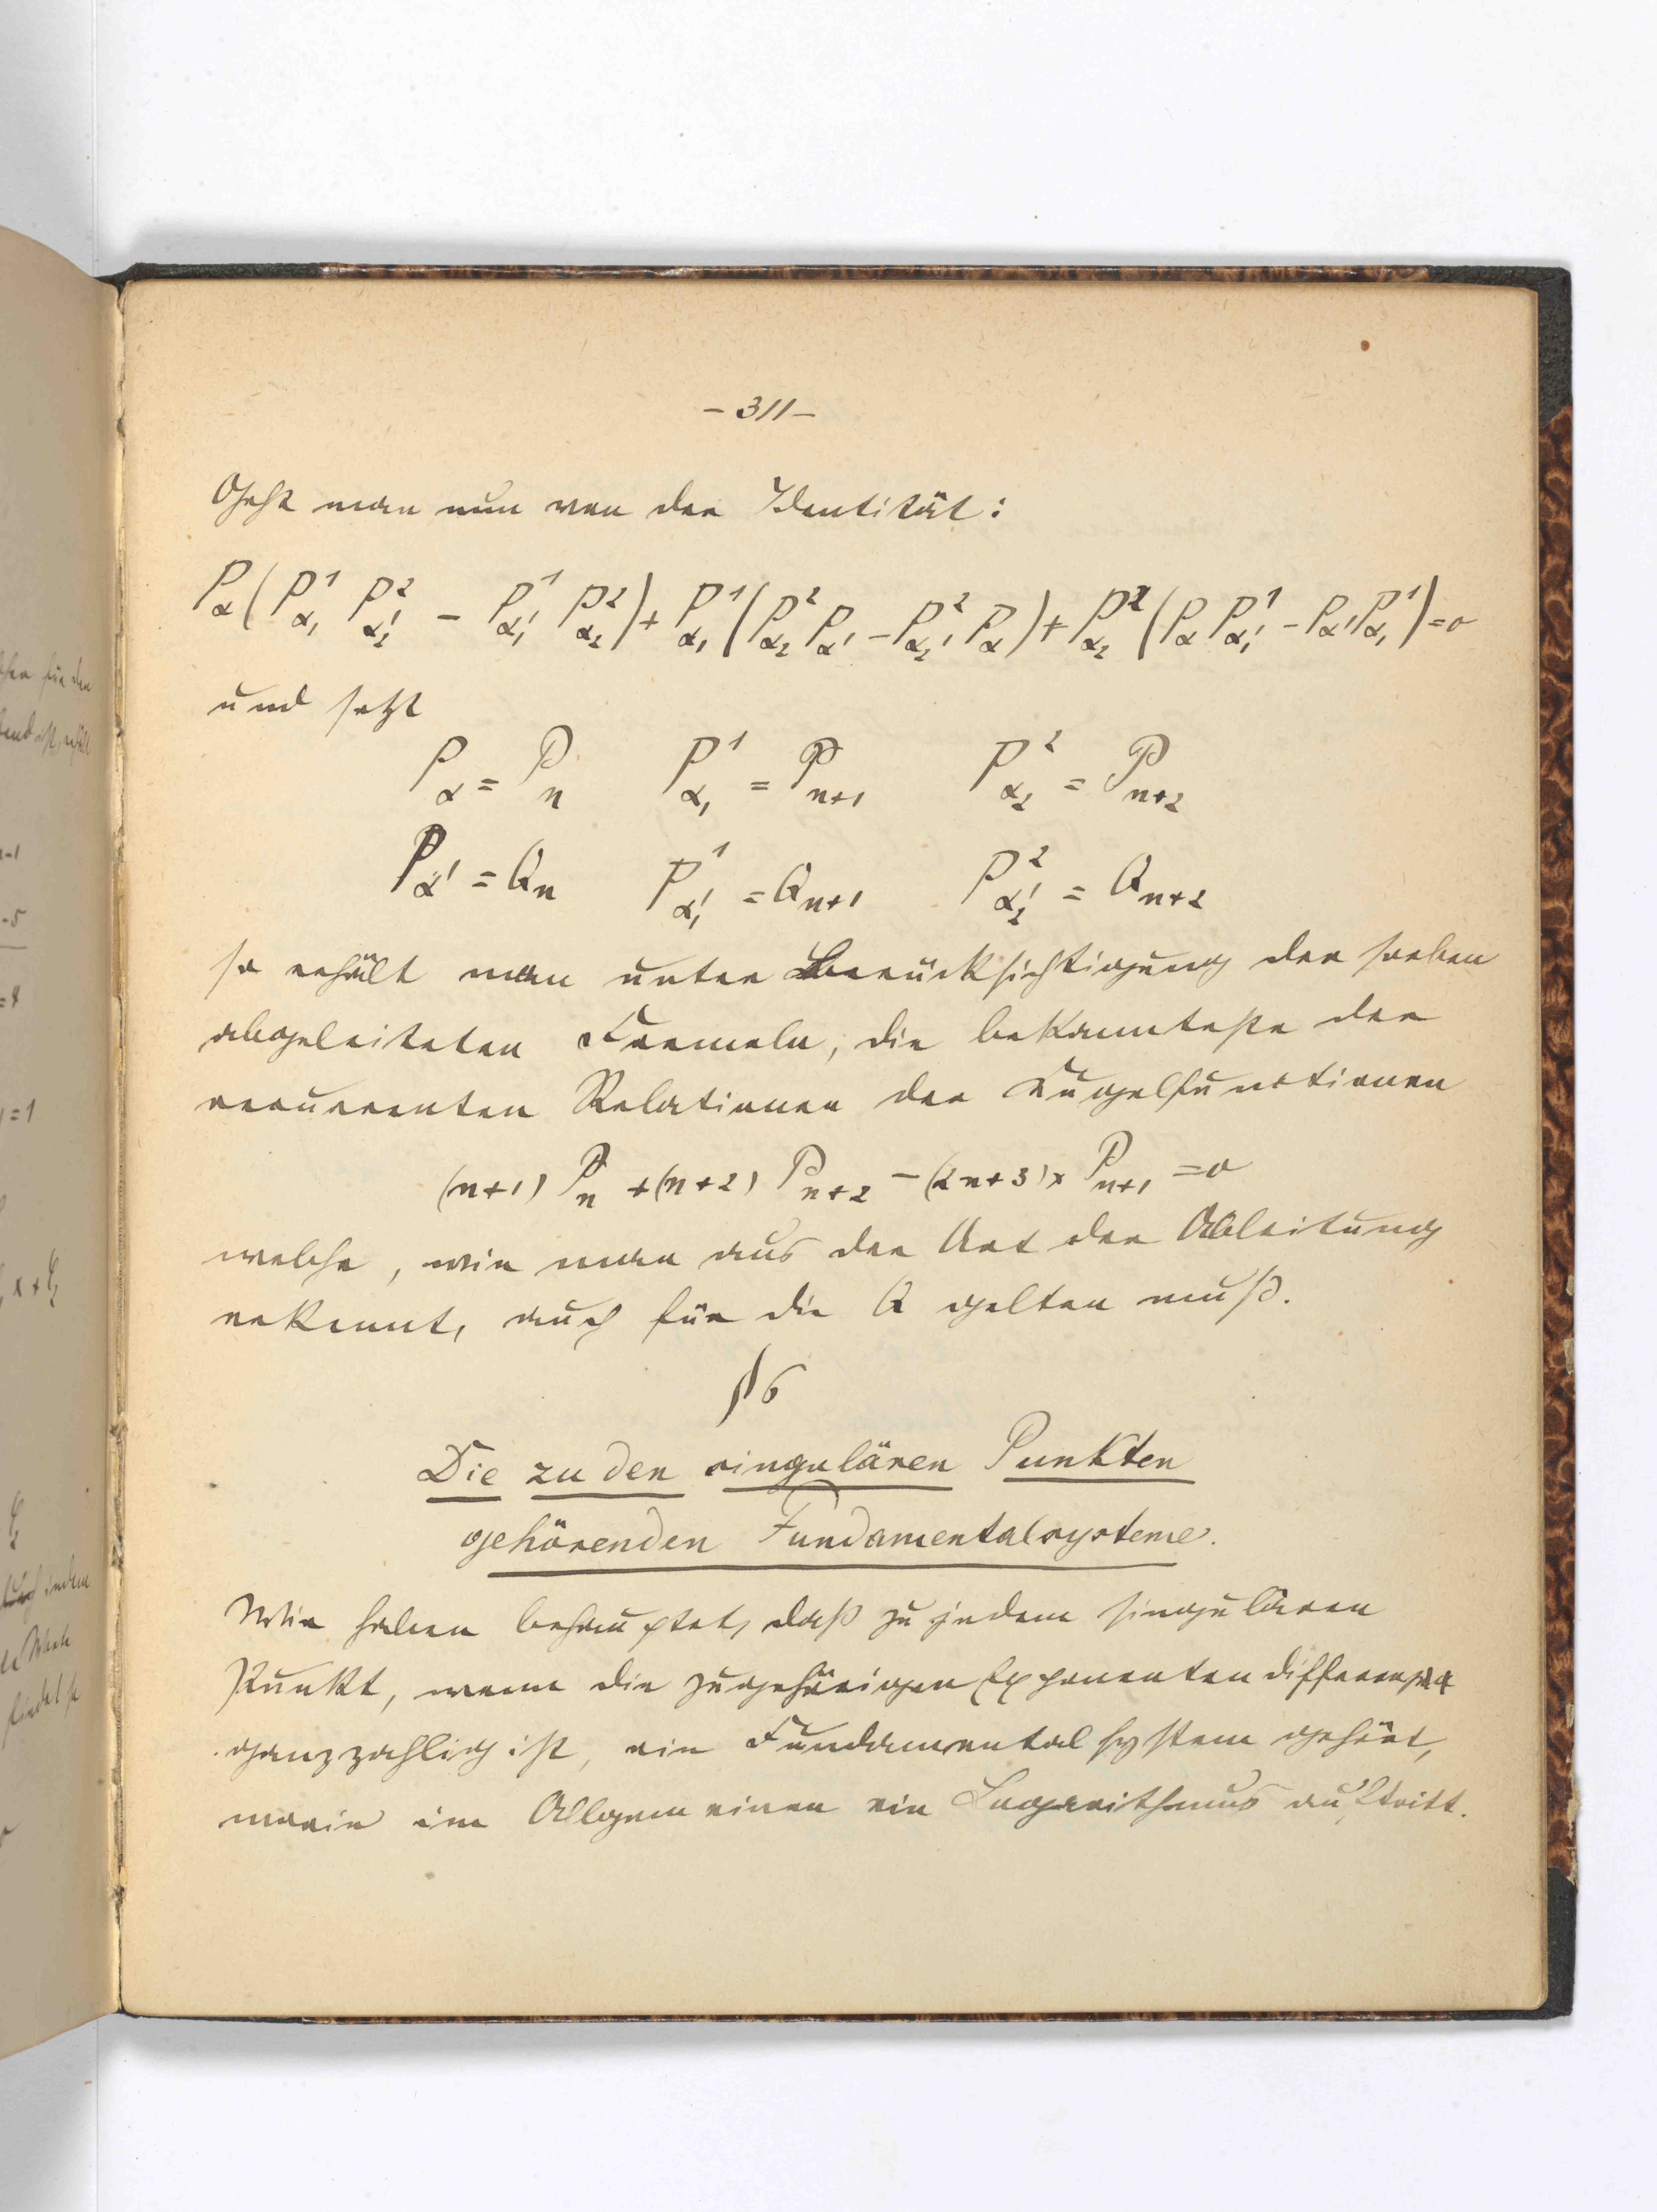 - 311 -
Geht man nun von der Identität:
P_α (P^1_{α_1} P^2_{α_2'} - P^1_{α_1'} P^2_{α_2}) + P^1_{α_1} (P^2_{α_2} P_{α'} - P^2_{α_2'} P_α) + P^2_{α_2} (P_α P^1_{α_1'} - P_{α'} P^1_{α_1}) = 0
und setzt
P_α = P_n P^1_{α_1} = P_{n+1} P^2_{α_2} = P_{n+2}
P_{α'} = Q_n P^1_{α_1'} = Q_{n+1} P^2_{α_2'} = Q_{n+2}
so erhält man unter Berücksichtigung der soeben
abgeleiteten Formeln, die bekannteste der
recurrenten Relationen der Kugelfunctionen
(n+1) P_n + (n+2) P_{n+2} - (2n+3) x P_{n+1} = 0
welche, wie man aus der Art der Ableitung
erkennt, auch für die Q gelten muß.
§ 6
Die zu den singulären Punkten
gehörenden Fundamentalsysteme.
Wir haben behauptet, daß zu jedem singulären
Punkt, wenn die zugehörigen Exponentendifferenz
ganzzahlig ist, ein Fundamentalsystem gehört,
worin im Allgemeinen ein Logarithmus auftritt.